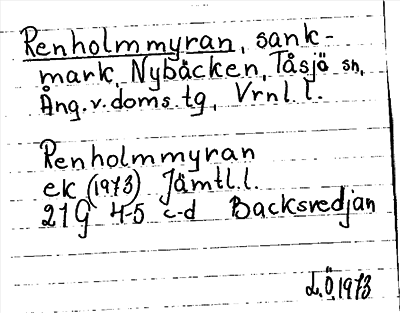 Renholmmyran, sank-
mark, Nybäcken, Tåsjö sn,
Ång. v. doms. tg, Vrnl. l.
Renholmmyran
ek (1973) Jämtl. l.
21G 4-5 c-d Backsvedjan
L.Ö. 1973